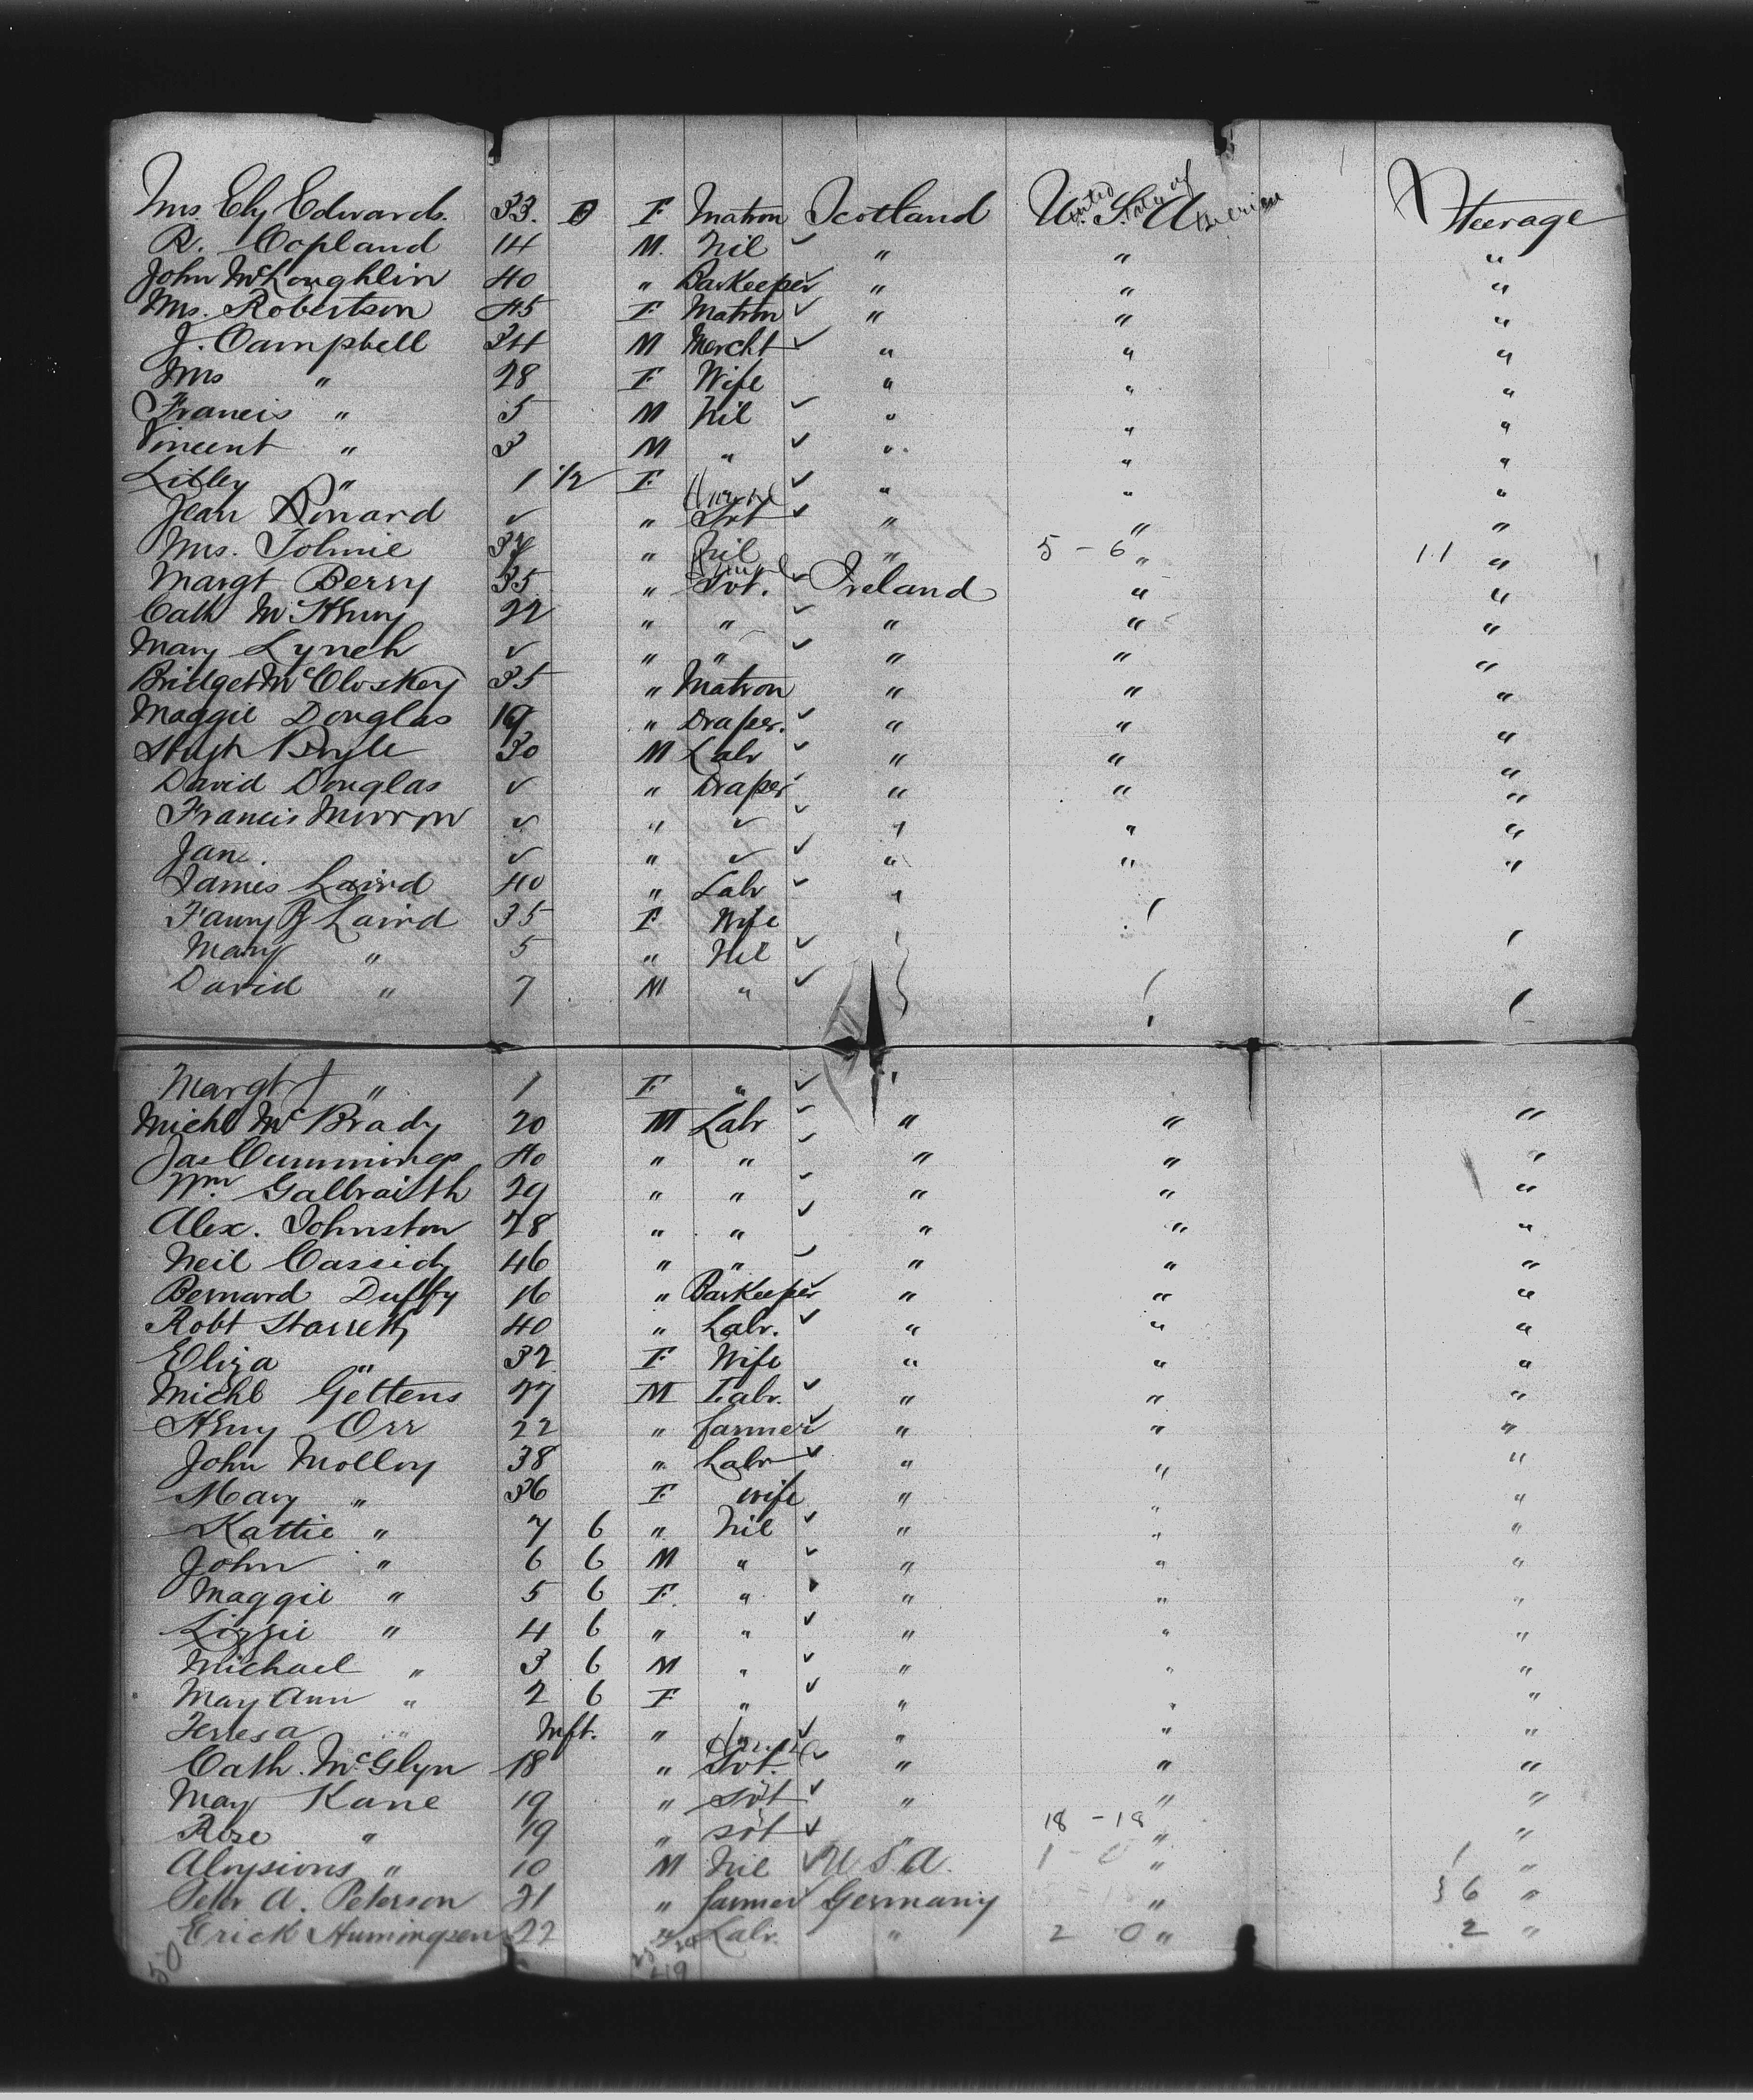 Mrs. Ely Edwards. 33. 0 F Matron Scotland United States of America Steerage
R. Copland 14 M. Nil ✓ " " "
John McLoughlin 40 " Barkeeper ✓ " " "
Mrs. Robertson 45 F Matron ✓ " " "
J. Campbell 34 M Mercht ✓ " " "
Mrs " 28 F Wife " " "
Francis " 5 M Nil ✓ " " "
Vincent " 3 M " ✓ " " "
Lilley " 1 1/2 F ✓ " " "
Jean ✓ " Svt ✓ " " "
Mrs. Tolmie " Nil " 5 - 6 " 11 "
Margt Berry 35 " Svt. ✓ Ireland " "
Cath McHenry 22 " " ✓ " " "
Mary Lynch ✓ " " ✓ " " "
Bridget McCloskey 35 " Matron " " "
Maggie Douglas 19 " Draper. ✓ " " "
Hugh Boyle 30 M Labr ✓ " " "
David Douglas ✓ " Draper ✓ " " "
Francis Morrow ✓ " ✓ ✓ " " "
Jane. ✓ " ✓ ✓ " " "
James Laird 40 " Labr ✓ "
Fanny J Laird 35 F Wife
Mary " 5 " Nil ✓
David " 7 M " ✓
Margt J " 1 F " ✓
Michl McBrady 20 M Labr ✓ " " "
Jas Cummings 40 " " ✓ " " "
Wm Galbraith 29 " " ✓ " " "
Alex. Johnston 28 " " ✓ " " "
Neil Cassidy 46 " " ✓ " " "
Bernard Duffy 16 " Barkeeper ✓ " " "
Robt Starrett 40 " Labr. ✓ " " "
Eliza " 32 F Wife " " "
Michl Gettens 27 M Labr. ✓ " " "
Henry Orr 22 " farmer ✓ " " "
John Molloy 38 " Labr ✓ " " "
Mary " 36 F wife " " "
Kattie " 7 6 " Nil ✓ " " "
John " 6 6 M " ✓ " " "
Maggie " 5 6 F. " ✓ " " "
Lizzie " 4 6 " " ✓ " " "
Michael " 3 6 M " ✓ " " "
May Ann " 2 6 F " ✓ " " "
Teresa " Inft. " " ✓ " " "
Cath. McGlyn 18 " Svt. ✓ " " "
May Kane 19 " svt ✓ " " "
Rose " 19 " svt ✓ " 18 - 18 " "
Aloysious " 10 M Nil ✓ U S A. 1 - 0 " 1 "
Peter A. Peterson 21 " farmer Germany " 6 "
Erick Humingsen 22 " Labr. " 2 0 " 2 "
50